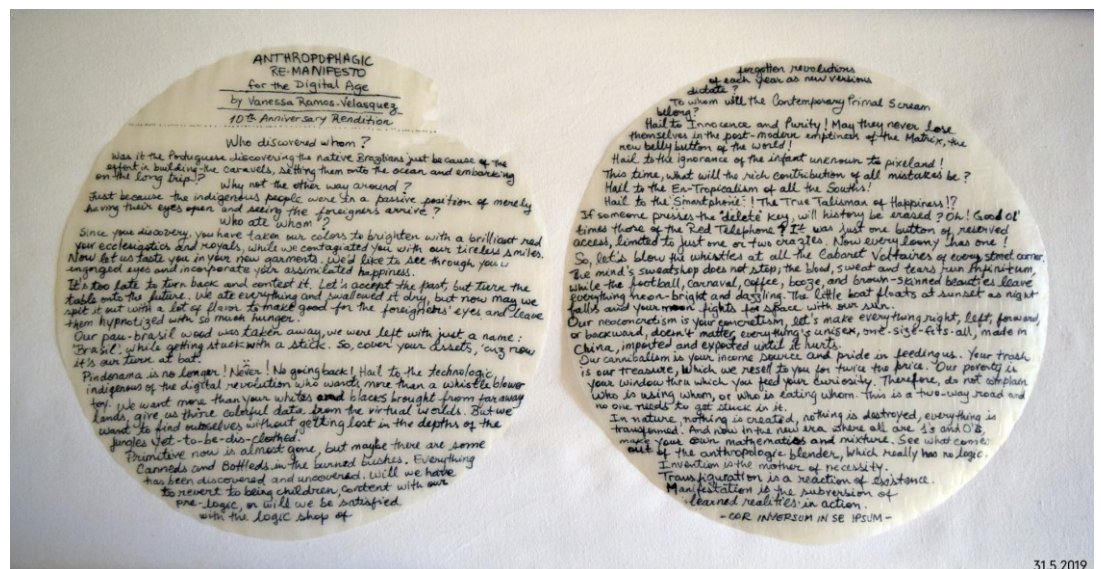 ANTHROPOPHAGIC
RE-MANIFESTO
for the Digital Age
by Vanessa Ramos-Velasquez
10th Anniversary Rendition
Who discovered whom?
Was it the Portuguese discovering the native Brazilians just because of the
effort in building the caravels, setting them onto the ocean and embarking
on the long trip?
Why not the other way around?
Just because the indigenous people were in a passive position of merely
having their eyes open and seeing the foreigners arrive?
Who ate whom?
Since your discovery, you have taken our colors to brighten with a brilliant red
your ecclesiastics and royals, while we contagiated you with our tireless smiles.
Now let us taste you in your new garments. We'd like to see through your
engaged eyes and incorporate your assimilated happiness.
It's too late to turn back and contest it. Let's accept the past, but turn the
table onto the future. We ate everything and swallowed it dry, but now may we
spit it out with a lot of flavor to make good for the foreigners' eyes and leave
them hypnotized with so much hunger.
Our pau-brasil wood was taken away, we were left with just a name:
Brasil, while getting stuck with a stick. So, cover your assets, 'cuz now
it's our turn at bat.
Pindorama is no longer! Never! No going back! Hail to the technologic
indigenous of the digital revolution who wants more than a whistle blower
toy. We want more than your whites and blacks brought from far away
lands, give us those colorful data from the virtual worlds. But we
want to find ourselves without getting lost in the depths of the
jungles yet-to-be-dis-clothed.
Primitive now is almost gone, but maybe there are some
Canneds and Bottleds in the burned bushes. Everything
has been discovered and uncovered. Will we have
to revert to being children, content with our
pre-logic, or will we be satisfied
with the logic shop of
forgotten revolutions
of each year as new versions
dictate?
To whom will the Contemporary Primal Scream
belong?
Hail to Innocence and Purity! May they never lose
themselves in the post-modern emptiness of the Matrix, the
new belly button of the world!
Hail to the ignorance of the infant unknown to pixeland!
This time, what will the rich contribution of all mistakes be?
Hail to the En-Tropicalism of all the Souths!
Hail to the Smartphone! The True Talisman of Happiness!?
If someone presses the 'delete' key, will history be erased? Oh! Good ol'
times those of the Red Telephone! It was just one button of reserved
access, limited to just one or two crazies. Now every loony has one!
So, let's blow the whistles at all the Cabaret Voltaires of every street corner.
The mind's sweatshop does not stop; the blood, sweat and tears run infinitum,
while the football, carnaval, coffee, booze, and brown-skinned beauties leave
everything neon-bright and dazzling. The little boat floats at sunset as night
falls and your moon fights for space with our sun.
Our neoconcretism is your concretism, let's make everything right, left, forward
or backward, doesn't matter, everything's unisex, one-size-fits-all, made in
China, imported and exported until it hurts.
Our cannibalism is your income source and pride in feeding us. Your trash
is our treasure, which we resell to you for twice the price. Our poverty is
your window thru which you feed your curiosity. Therefore, do not complain
who is using whom, or who is eating whom. This is a two-way road and
no one needs to get stuck in it.
In nature, nothing is created, nothing is destroyed, everything is
transformed. And now in the new era where all are 1's and 0's,
make your own mathematics and mixture. See what comes
out of the anthropologic blender, which really has no logic.
Invention is the mother of necessity.
Transfiguration is a reaction of existence.
Manifestation is the subversion of
learned realities in action.
-COR INVERSUM IN SE IPSUM-
31.5.2019